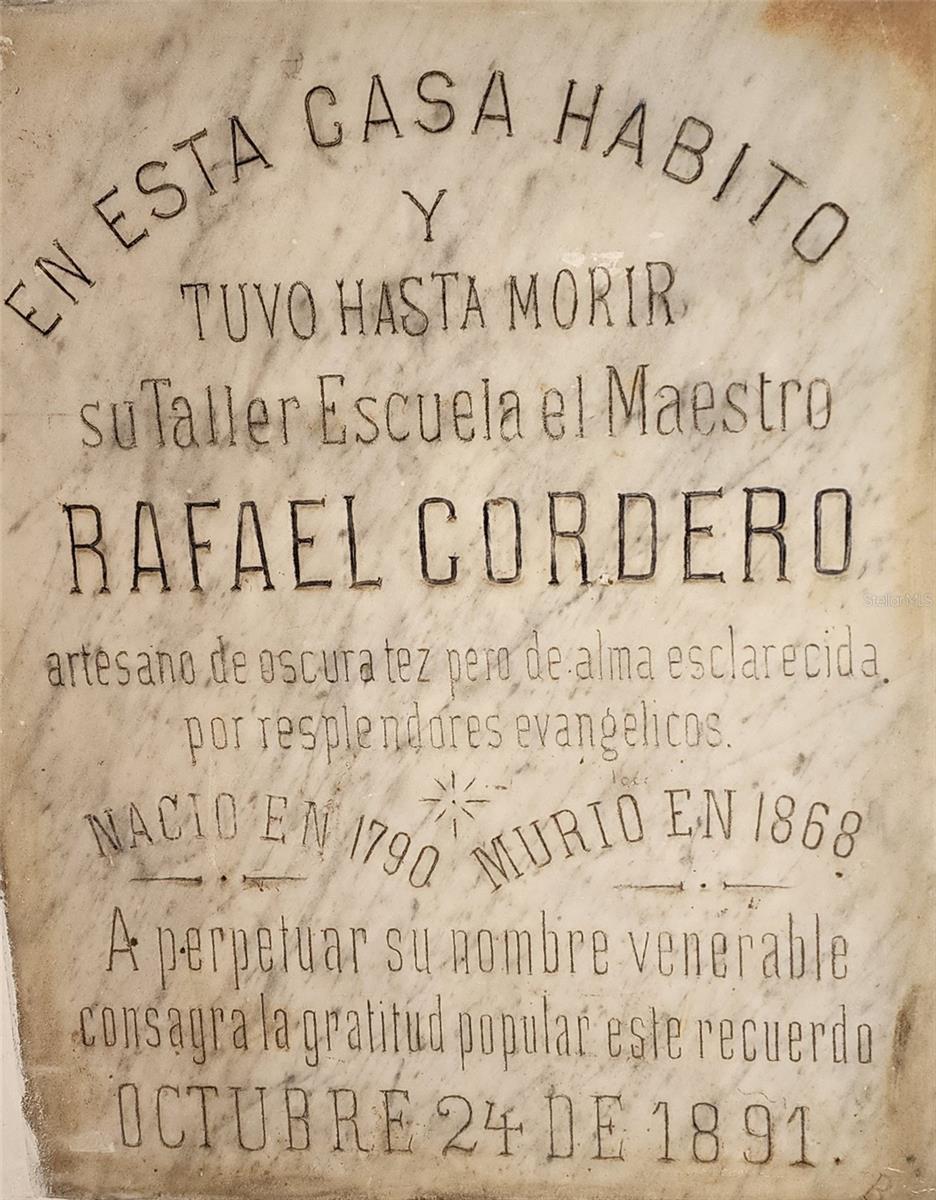 EN ESTA CASA HABITO
Y
TUVO HASTA MORIR
su Taller Escuela el Maestro
RAFAEL CORDERO
Stellar MLS
artesano de oscura tez pero de alma esclarecida.
por resplendores evangelicos.
NACIO EN 1790 MURIO EN 1868
A perpetuar su nombre venerable
consagra la gratitud popular este recuerdo
OCTUBRE 24 DE 1891.